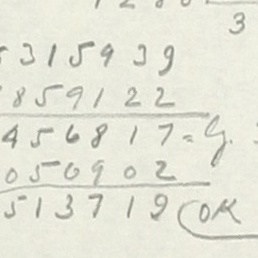 3
315939
859122
456817 = G.
056902
513719 (OK